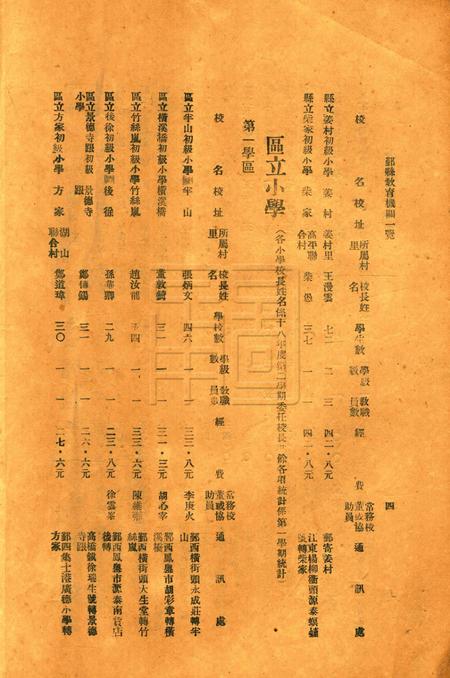 鄞縣教育機關一覽
四
校名 校址 所屬村里 校長姓名 學生數 學級數 教職員數 經費 常務校董或協助員 通訊處
縣立姜村初級小學 姜村 姜村里 王漫雲 七二 二 三 四二·八元 鄞寄姜村
縣立柴家初級小學 柴家 高平聯合村 柴愚 三七 一 一 四二·八元 江東楊柳衖頭源泰 轉柴家
區立小學(各小學校長姓名係十八年度第二學期委任校長 餘各項統計係第一學期統計)
第一學區
校名 校址 所屬村里 校長姓名 學校數 學級數 教職員數 經費 常務校董或協助員 通訊處
區立半山初級小學 半山 張炳文 四六 一 一 三三·八元 李庚火 鄞西橫街頭永成莊轉半山
區立橫溪橋初級小學 橫溪橋 董敦 三一 一 一 三一·三元 胡必宰 鄞西鳳奧市胡彩章轉橫溪橋
區立竹絲嵐初級小學 竹絲嵐 趙汝 四 一 一 三三·六元 陳 鄞西橫街頭大生堂轉竹絲嵐
區立後徐初級小學 後徐 孫 二九 一 一 二三·八元 徐雲 鄞西鳳奧市源泰南貨店後轉
區立景德寺跟初級小學 景德寺跟 鄭 錫 三一 一 一 二六·六元 高橋 徐瑞生號轉景德寺跟
區立方家初級小學 方家 湖山聯合村 鄭道璋 三〇 一 一 二七·六元 鄞西集士港廣德小學轉方家